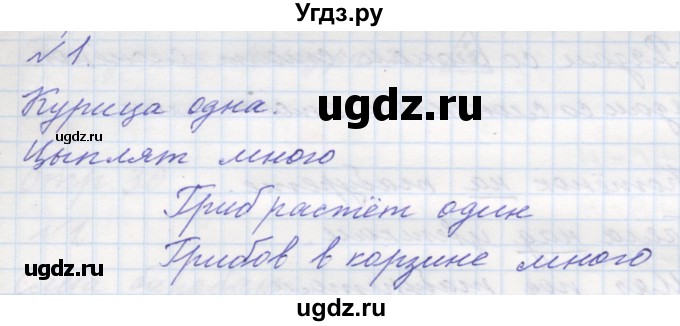 Угдз.ру
№1.
Курица одна.
ugdz.ru
Цыплят много
ugdz.ru
Гриб растёт один
Грибов в корзине много
ugdz.ru
ugdz.ru